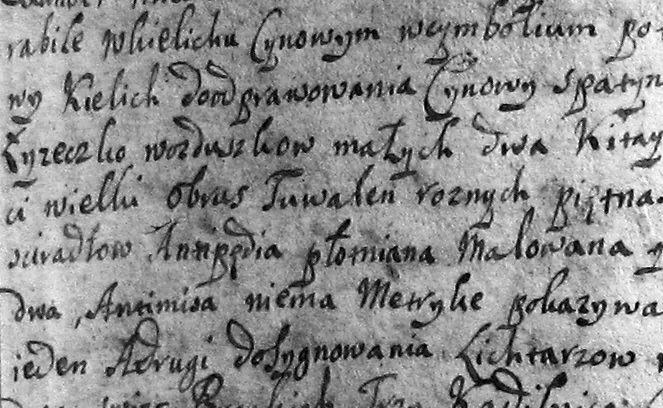 rabile wkielichu Cynowym wcymbolium po
wy Kielich doodprawowania Cynowy spatyn
Łyzeczko wozduszkow małych dwa Kitay
ci wielki Obrus Tuwalen roznych piętna
sciradłow Antipędia płotniana Malowana
dwa, Antimisa niema Metryke pokazywa
ieden Adrugi dosygnowania Lichtarzow